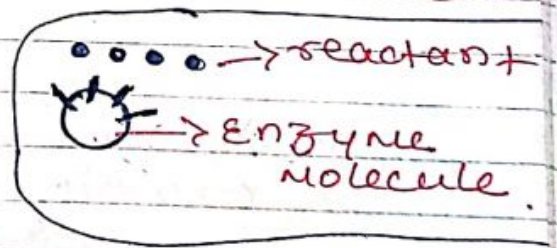 → reactant
→ Enzyme
Molecule.